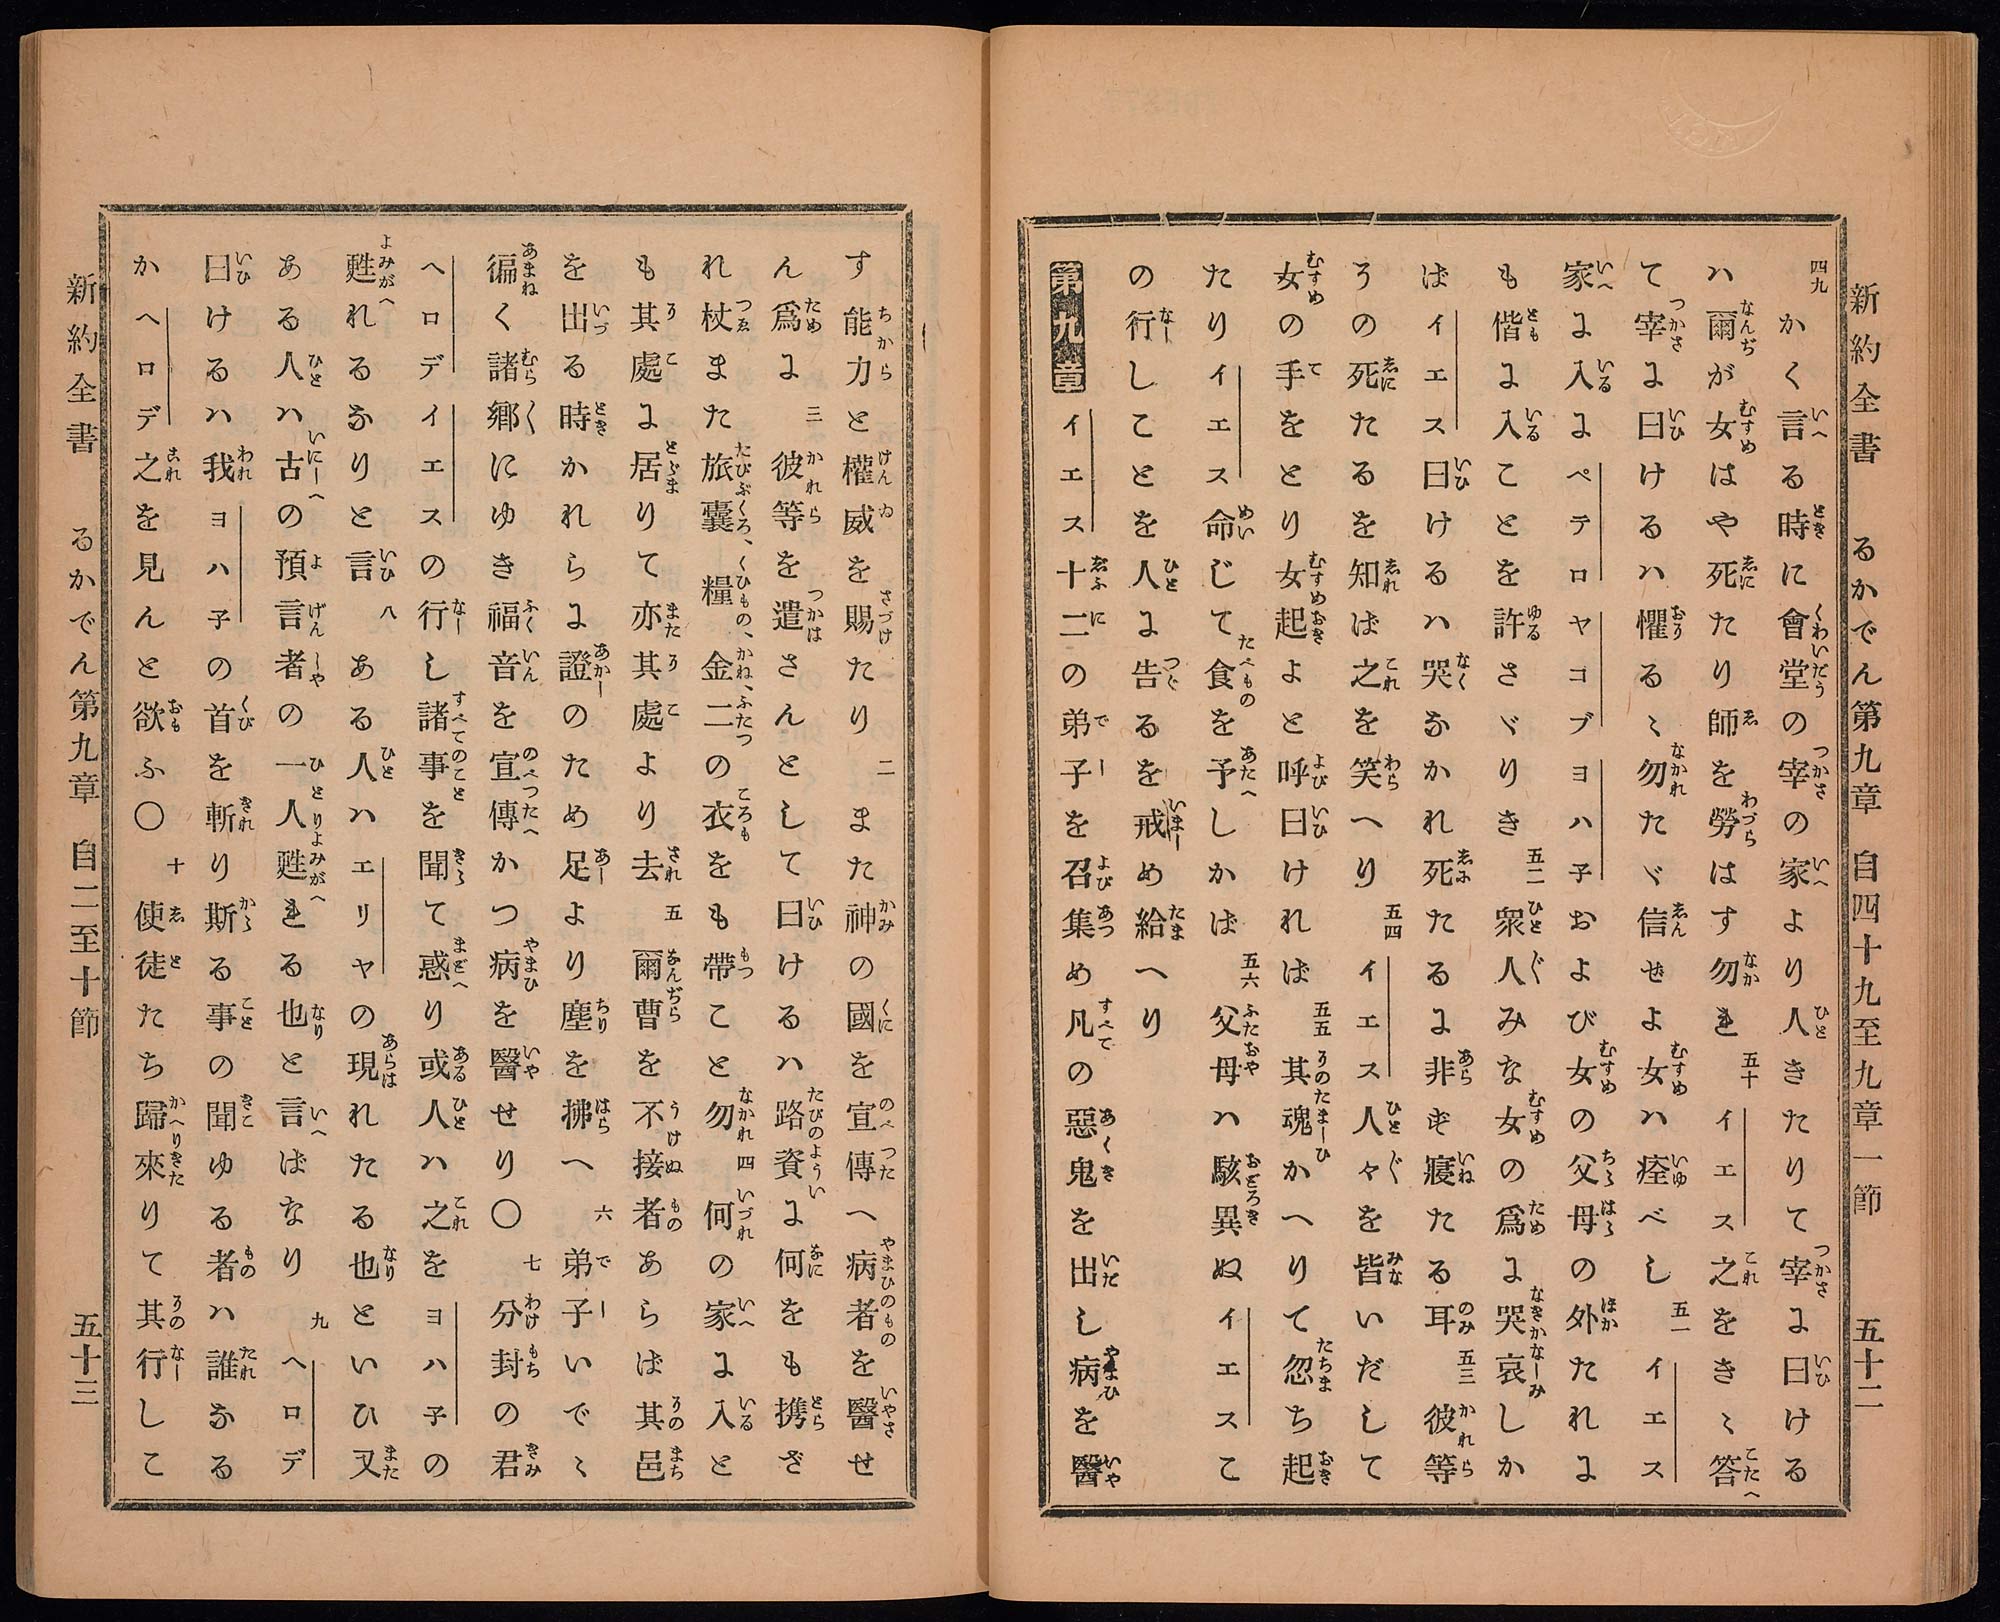 新約全書 るかでん第九章 自四十九至九章一節 五十二
四九 かく言る時に會堂の宰の家より人きたりて宰に曰ける
ハ爾が女はや死たり師を勞はす勿れ 五十 イエス之をきゝ答
て宰に曰けるハ懼るゝ勿たゞ信せよ女ハ痊べし 五一 イエス
家に入にペテロヤコブヨハ子および女の父母の外たれに
も偕に入ことを許さゞりき 五二 衆人みな女の爲に哭哀しか
ばイエス曰けるハ哭なかれ死たるに非ず寢たる耳 五三 彼等
その死たるを知ば之を笑へり 五四 イエス人々を皆いだして
女の手をとり女起よと呼曰ければ 五五 其魂かへりて忽ち起
たりイエス命じて食を予しかば 五六 父母ハ駭異ぬイエスこ
の行しことを人に告るを戒め給へり
第九章 イエス十二の弟子を召集め凡の惡鬼を出し病を醫
す能力と權威を賜たり 二 また神の國を宣傳へ病者を醫せ
ん爲に 三 彼等を遣さんとして曰けるハ路資に何をも携ざ
れ杖また旅囊、糧、金、二の衣をも帶こと勿 四 何の家に入と
も其處に居りて亦其處より去 五 爾曹を不接者あらば其邑
を出る時かれらに證のため足より塵を拂へ 六 弟子いでゝ
徧く諸鄉にゆき福音を宣傳かつ病を醫せり〇 七 分封の君
ヘロデイエスの行し諸事を聞て惑り或人ハ之をヨハ子の
甦れるなりと言 八 ある人ハエリヤの現れたる也といひ又
ある人ハ古の預言者の一人甦れる也と言ばなり 九 ヘロデ
曰けるハ我ヨハ子の首を斬り斯る事の聞ゆる者ハ誰なる
かヘロデ之を見んと欲ふ〇 十 使徒たち歸來りて其行しこ
新約全書 るかでん第九章 自二至十節 五十三